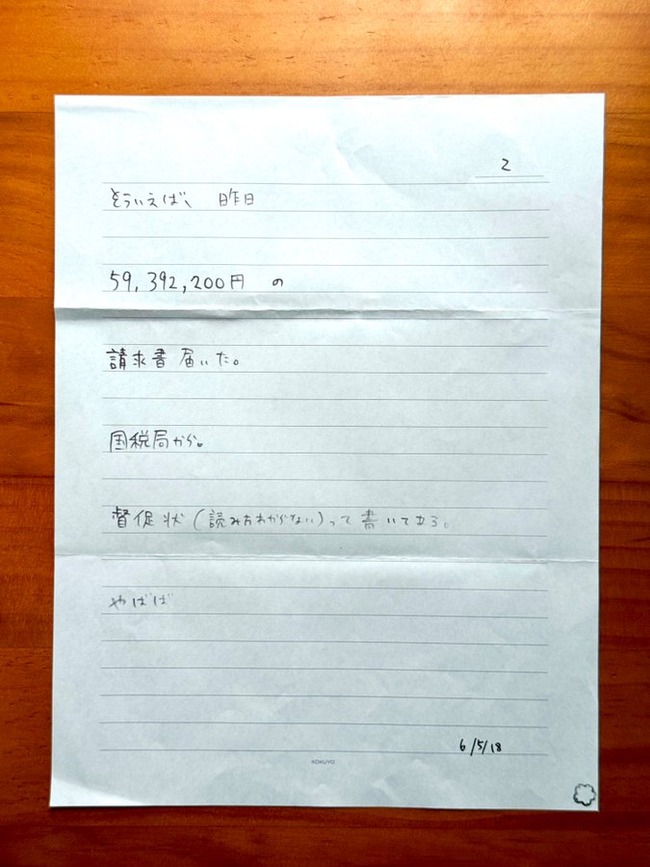 2
そういえば、 昨日
59,392,200円 の
請求書 届いた。
国税局から。
督促状(読み方わからない)って 書いてある。
やばば
6/5/18
KOKUYO